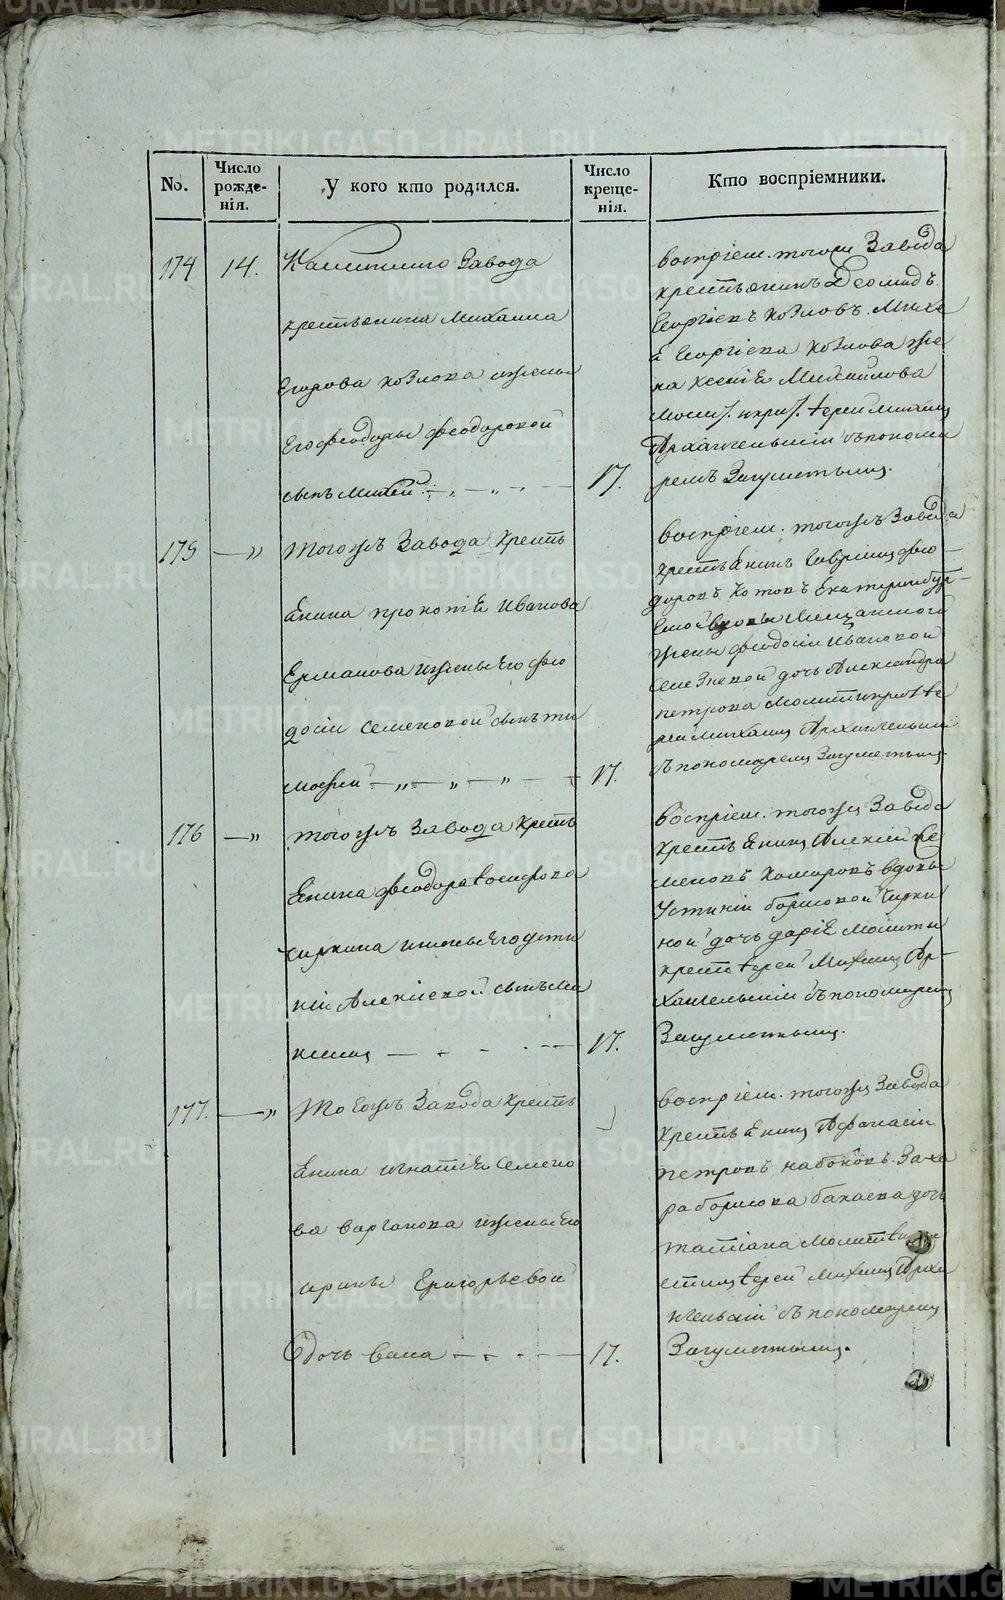 No.
Число рожде-нія.
У кого кто родился.
Число креще-нія.
Кто воспріемники.
174
14.
Завода
крестьянина Михаила
Егорова Козлова и жены
Его Феодоры Феодоровой
сынъ
17.
воспріем. тогоже Завода
крестьянинъ Деомидъ
Георгіевъ Козловъ. Миха
Георгіева Козлова же
на Ксенія Михайлова
Молит. и крест. Іерей Михаилъ
Архангельскій съ понома
ремъ
175
—"
Тогожъ Завода Крестъ
янина Прокопія Иванова
Ерманова и жены Его Фео
досіи Семеновой сынъ Ти
мофей
17.
воспріем. тогожъ Завода
крестьянинъ Гаврила Фео
доровъ Котовъ Екатеринбур-
ской вдовы Мещанской
жены Феодосіи Ивановой
дочь Александра
Петрова Молитв. и крест. Іе
рей Михаилъ Архангельскій
съ пономаремъ
176
—"
тогожъ Завода Кресть
янина Феодора Іосифова
Чиркина и жены Его Усти
ніи Алексіевой сынъ Ма
ксимъ
17.
воспріем. тогожъ Завода
Крестьянинъ Алексій Се
меновъ Комаровъ вдовы
Устиніи Борисовой Чирки
ной дочь Дарія Молитв.
крест. Іерей Михаилъ Ар-
хангельскій съ пономаремъ
177.
—"
Тогожъ Завода Кресть
янина Игнатія Семено
ва Варганова и жены Его
Ирины Григорьевой
дочь
17.
воспріем. тогожъ Завода
Крестьянинъ Афанасій
Петровъ Набоковъ. Заха
ра Борисова Бакаева дочь
Татіана Молитв. и кре
стилъ Іерей Михаилъ Архан
гельскій съ пономаремъ
METRIKI.GASO-URAL.RU